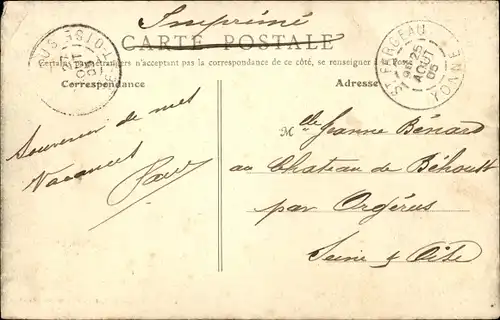 Imprimé
CARTE POSTALE
Certains pays étrangers n'acceptent pas la correspondance de ce côté, se renseigner
Correspondance
Adresse
ST FARGEAU
25
AOUT
05
YONNE
Souvenir de mes
Vacances
Mlle Jeanne Bénard
au Chateau de Béhoust
par Orgérus
Seine & Oise